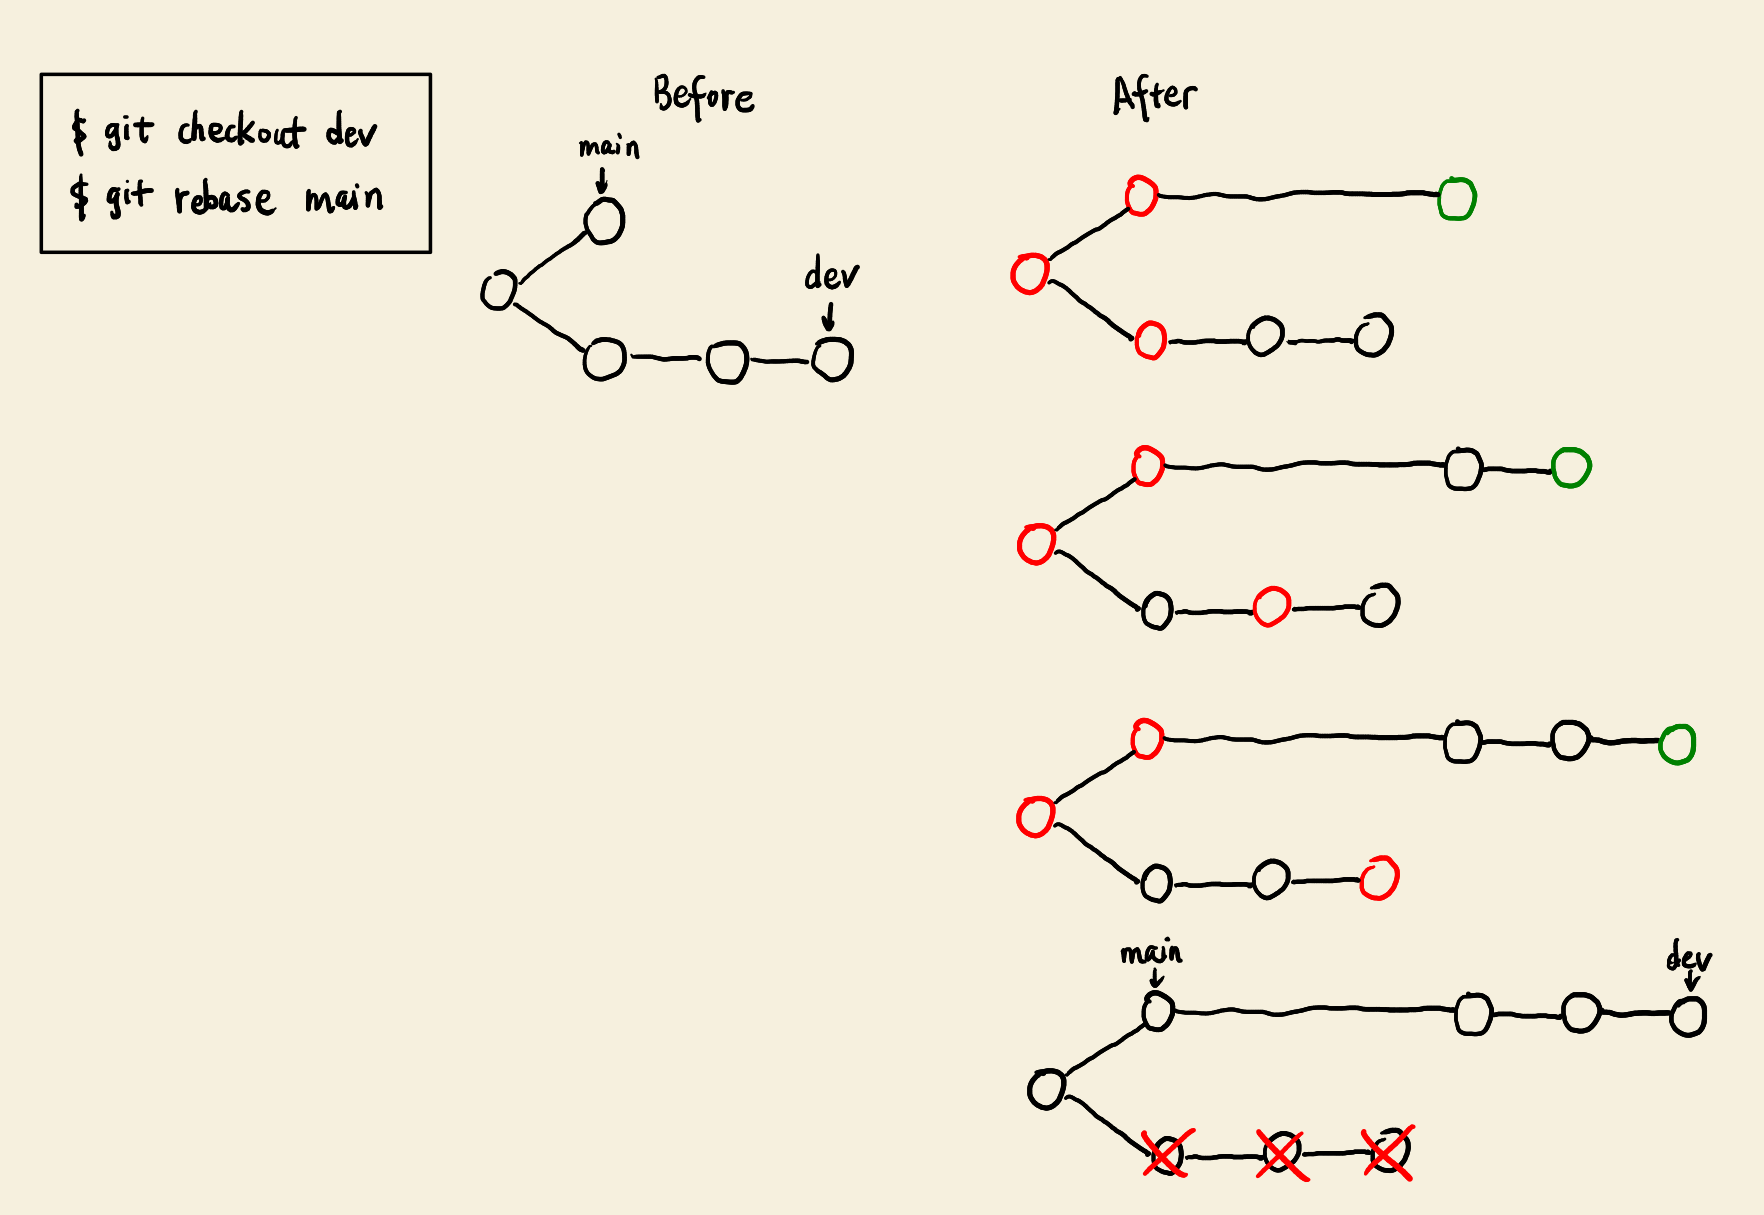 $ git checkout dev
$ git rebase main
Before
After
main
dev
main
dev